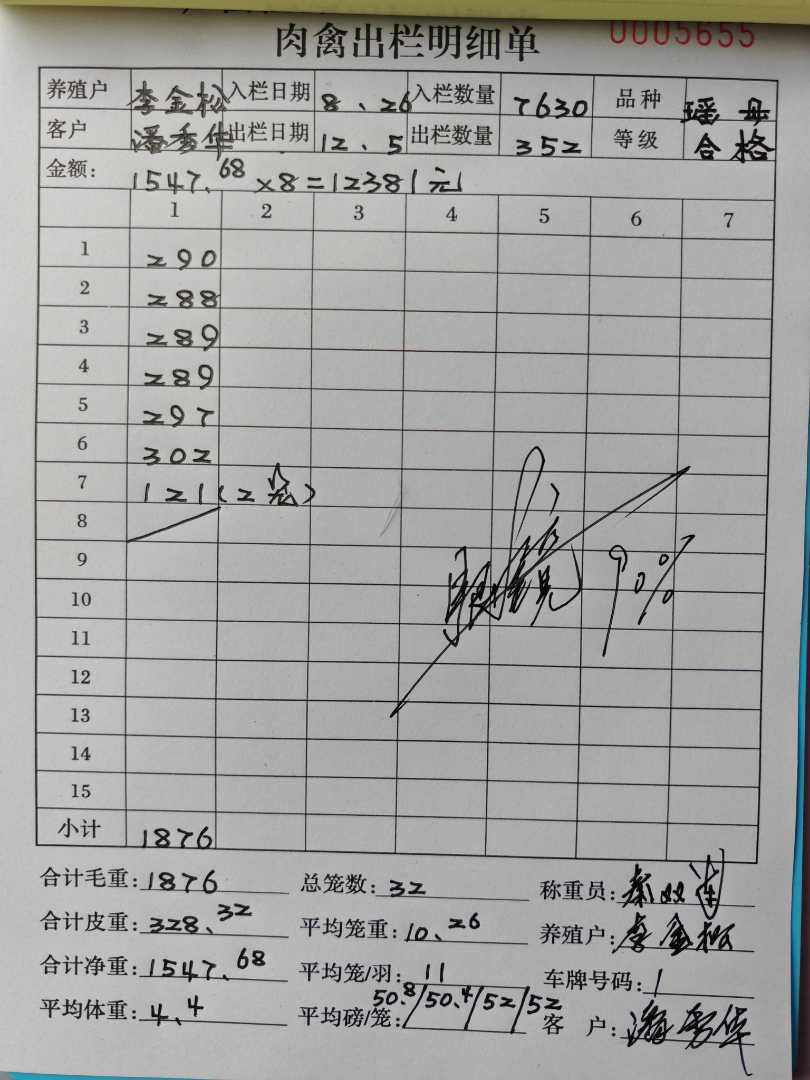 肉禽出栏明细单 0005655
养殖户 李金松 入栏日期 8、26 入栏数量 7630 品种 瑶母
客户 潘秀华 出栏日期 12、5 出栏数量 352 等级 合格
金额: 1547.68×8=12381元
1 2 3 4 5 6 7
1 290
2 288
3 289
4 289
5 297
6 302
7 121(2笼)
8
9 90%
10
11
12
13
14
15
小计 1876
合计毛重: 1876 总笼数: 32 称重员:
合计皮重: 328.32 平均笼重: 10.26 养殖户: 李金松
合计净重: 1547.68 平均笼/羽: 11 车牌号码: /
平均体重: 4.4 平均磅/笼: 50.8/50.4/52/52 客户: 潘秀华